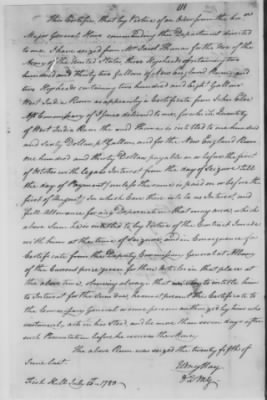 This Certifies that by Virtue of an Order from the hon
Major General Howe commanding the Department directed
to me I have seized from Mr Isaac Thomas for the Use of the
Army of the United States three Hogsheads containing two
hundred and thirty two Gallons of New England Rum and
two Hogsheads containing two hundred and Eight Gallons
West India Rum as appears by a Certificate from John Elder
Commissary of Issues delivered to me for which Quantity
of West India Rum the said Thomas is intitled to one hundred
and sixty Dollars Gallon and for the New England Rum
one hundred and thirty Dollars payable on or before the first
of October with Legal Interest from the day of Seizure 'till
the day of Payment unless the same is paid on or before the
first of August, in which Case there is to be no Interest, and
full Allowance for any Depreciation that may arise, which
above Sum he is entitled to by Virtue of the Contract I made
with him at the time of Seizure and in Consequence of a
Certificate from the Deputy Commissary General at Albany
of the Current price given for those Articles in that place at
the above time, shewing always that to entitle him
to Interest for the Sum due, he must present this Certificate to
the Commissary General or some person authorized by him who
customarily acts in his Stead, and be more than seven days after
such Presentation before he receives the Money.
The above Rum was seized the twenty fifth of
June last.
Udny Hay
Fish Kill July 15th 1780